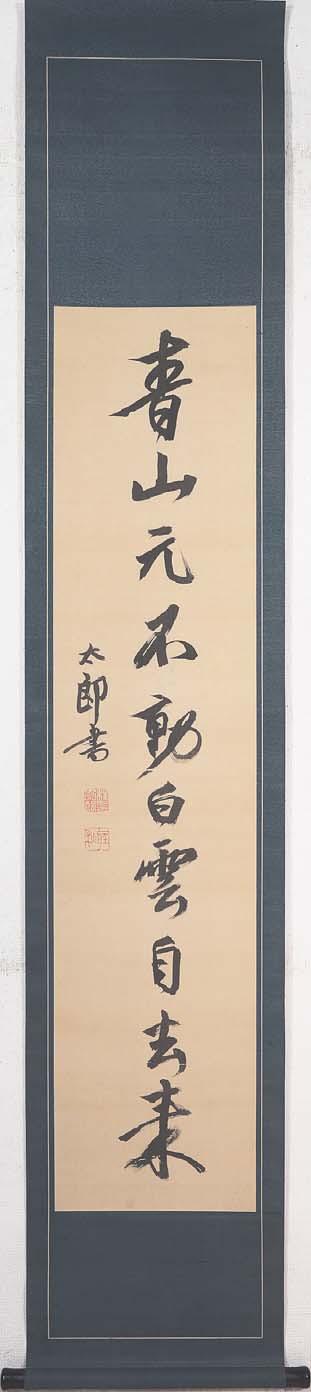 青山元不動白雲自去来
太郎書